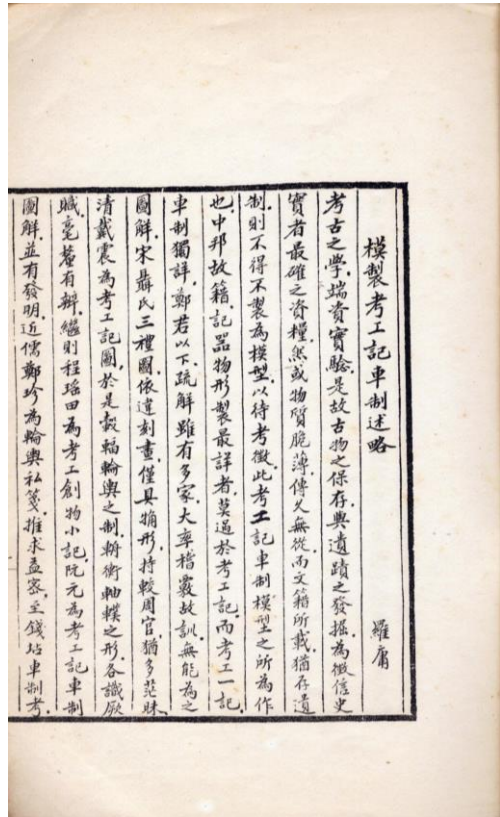 模製考工記車制述略
羅庸
考古之學,端資實驗.是故古物之保存與遺蹟之發掘,為徵信史
實者最確之資糧.然或物質脆薄,傳久無從,而文籍所載,猶存遺
制,則不得不製為模型,以待考徵.此考工記車制模型之所為作
也.中邦故籍,記器物形製最詳者,莫過於考工記.而考工一記,
車制獨詳.鄭君以下,疏解雖有多家,大率稽覈故訓,無能為之
圖解.宋聶氏三禮圖,依違刻畫,僅具觕形,持較周官,猶多茫昧.
清戴震為考工記圖,於是轂輻輪輿之制,輈衡軸轐之形,各識厥
職,毫釐有辨.繼則程瑤田為考工創物小記,阮元為考工記車制
圖解,並有發明.近儒鄭珍為輪輿私箋,推求益密.至錢坫車制考,